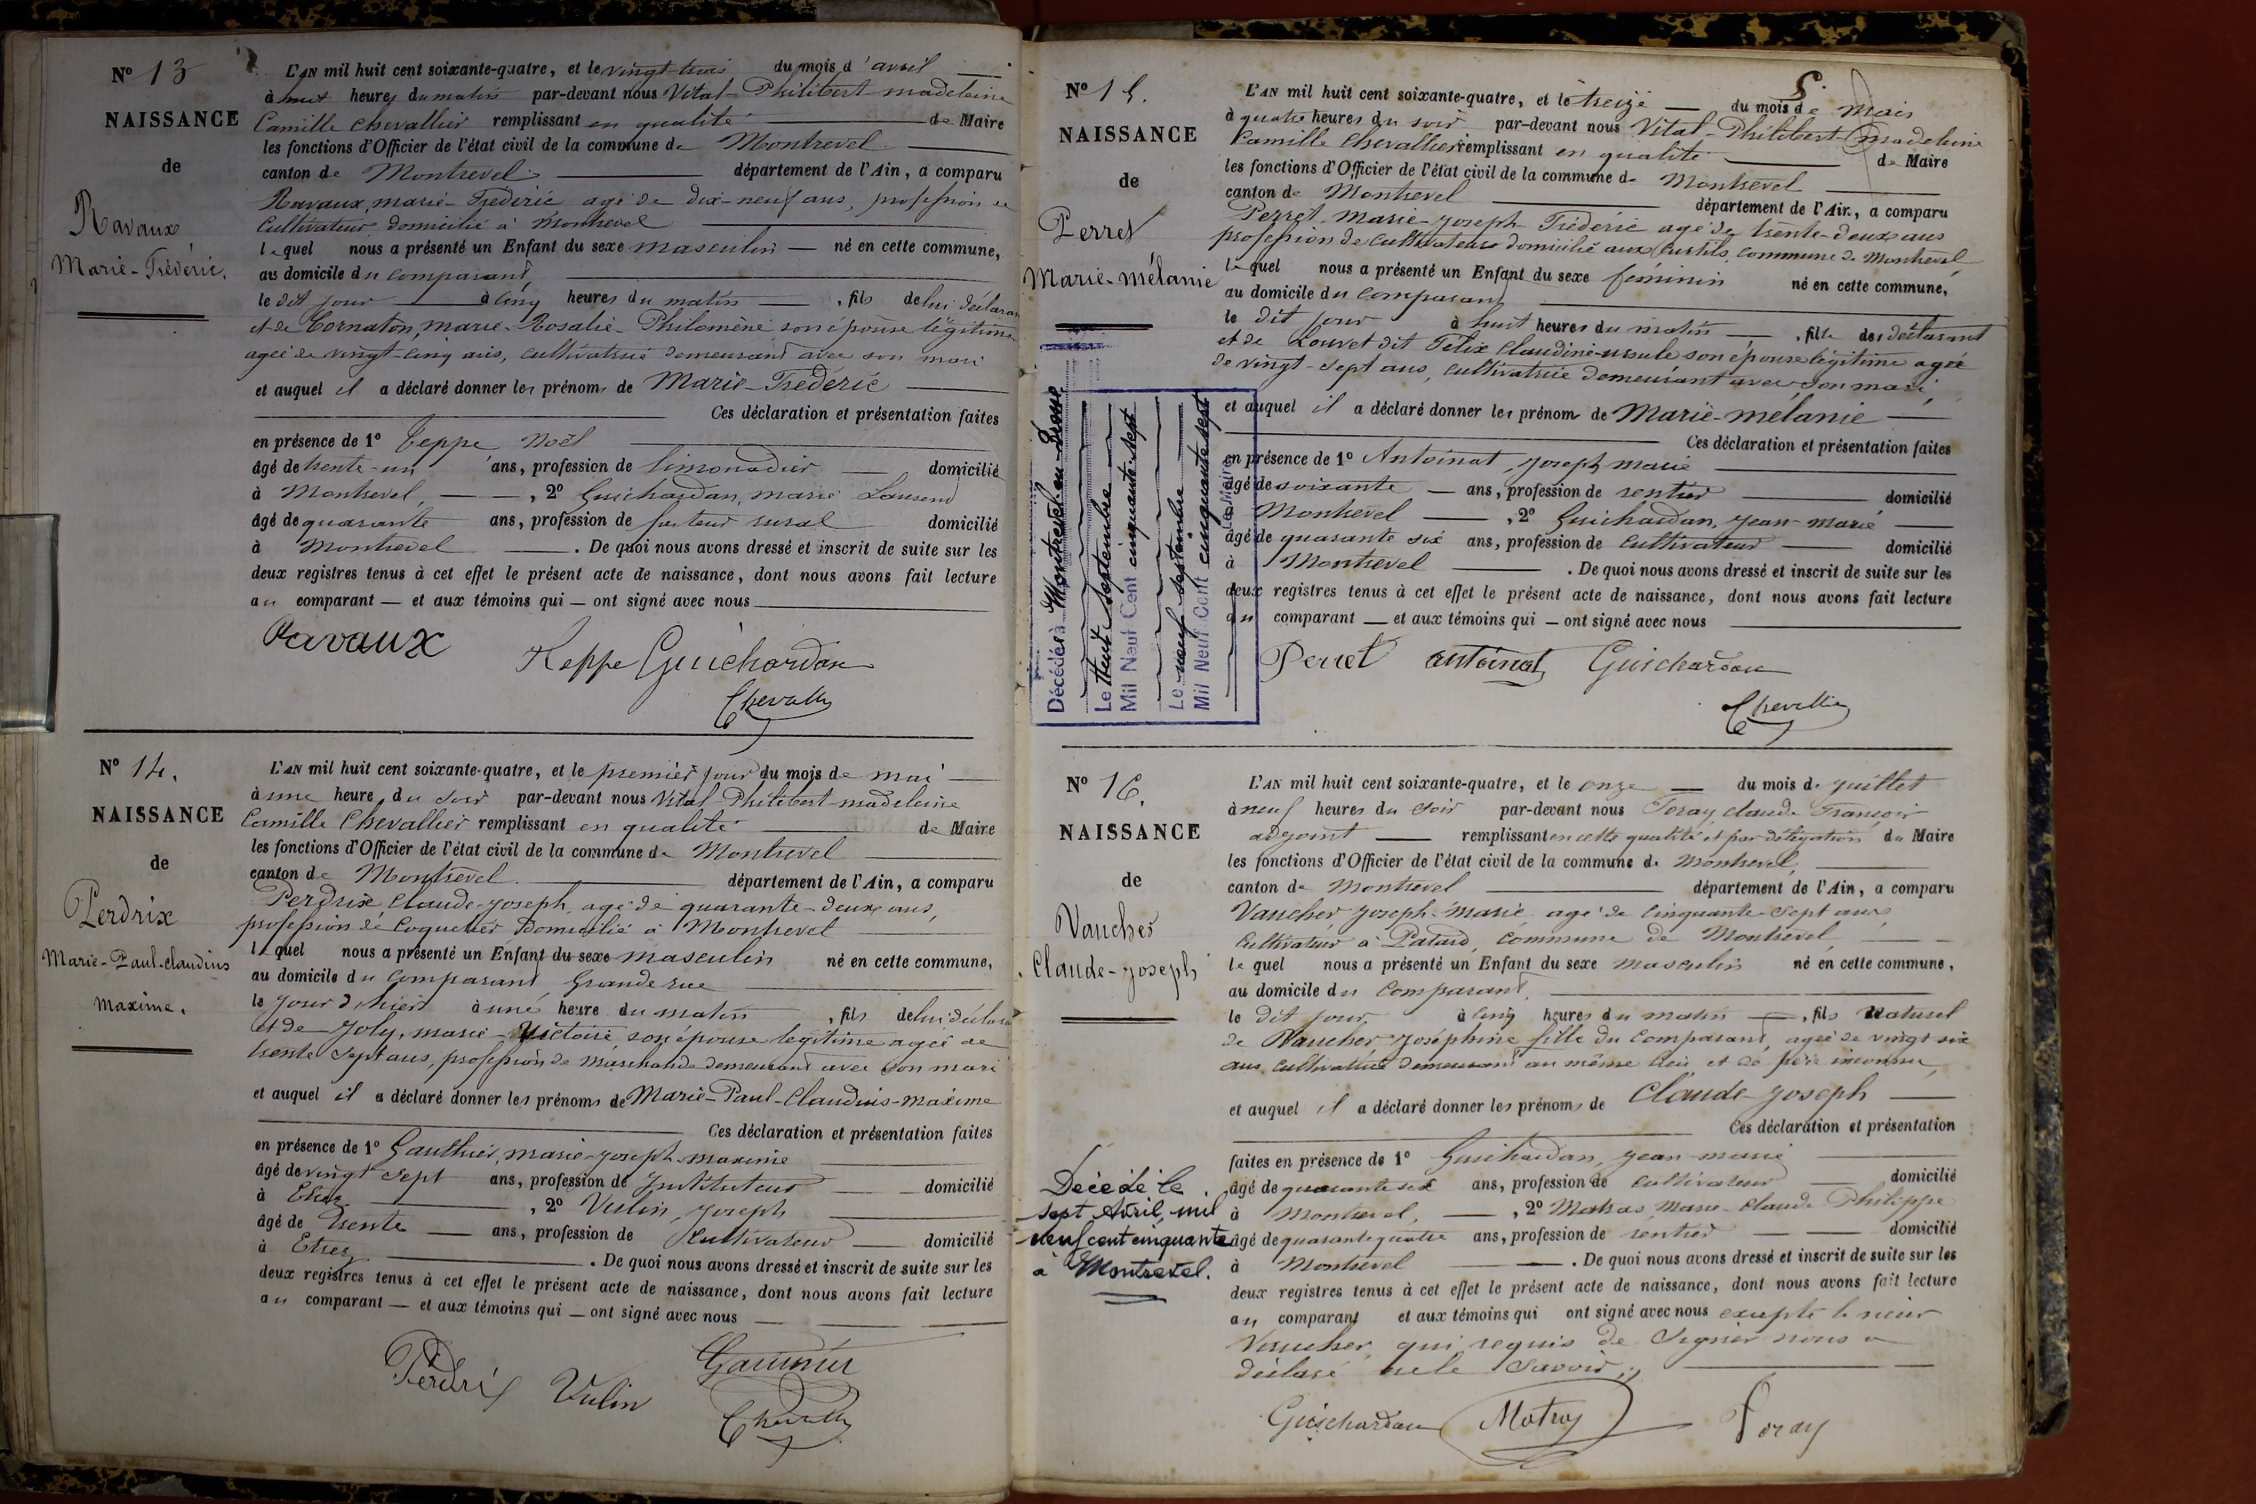 Nº 13
NAISSANCE
de
Ravaux
Marie-Fréderic.
L'AN mil huit cent soixante-quatre, et le vingt trois du mois d'avril
à huit heures du matin par-devant nous Vital-Philibert-madeleine
Camille Chevallier remplissant en qualité de Maire
les fonctions d'Officier de l'état civil de la commune de Montrevel
canton de Montrevel département de l'Ain, a comparu
Ravaux, marie-Fréderic agé de dix-neuf ans, profession de
Cultivateur domicilié à Montrevel
lequel nous a présenté un Enfant du sexe masculin né en cette commune,
au domicile du comparant,
le dit jour à cinq heures du matin, fils de lui déclarant
et de Cornaton, marie-Rosalie-Philomène son épouse légitime
agée de vingt-cinq ans, cultivatrice demeurant avec son mari
et auquel il a déclaré donner les prénoms de Marie-Fréderic
Ces déclaration et présentation faites
en présence de 1º Teppe Noël
âgé de trente-un ans, profession de limonadier domicilié
à Montrevel, 2º Guichardan, marie Laurent
âgé de quarante ans, profession de facteur rural domicilié
à Montrevel. De quoi nous avons dressé et inscrit de suite sur les
deux registres tenus à cet effet le présent acte de naissance, dont nous avons fait lecture
au comparant — et aux témoins qui — ont signé avec nous
Ravaux
Teppe Guichardan
Chevallier
Nº 14.
NAISSANCE
de
Perdrix
Marie-Paul-claudius
maxime.
L'AN mil huit cent soixante-quatre, et le premier jour du mois de mai
à une heure du soir par-devant nous Vital-Philibert-madeleine
Camille Chevallier remplissant en qualité de Maire
les fonctions d'Officier de l'état civil de la commune de Montrevel
canton de Montrevel département de l'Ain, a comparu
Perdrix Claude-Joseph, agé de quarante-deux ans,
profession de Coquetier Domicilié à Montrevel
lequel nous a présenté un Enfant du sexe masculin né en cette commune,
au domicile du comparant, Grande rue
le jour d'hier à une heure du matin, fils de lui déclarant
et de Joly, marie-Victoire, son épouse légitime agée de
trente sept ans, profession de marchande demeurant avec son mari
et auquel il a déclaré donner les prénoms de Marie-Paul-Claudius-maxime
Ces déclaration et présentation faites
en présence de 1º Gauthier, marie-joseph-maxime
âgé de vingt sept ans, profession de Instituteur domicilié
à Etrez, 2º Vulin, joseph
âgé de trente ans, profession de Cultivateur domicilié
à Etrez. De quoi nous avons dressé et inscrit de suite sur les
deux registres tenus à cet effet le présent acte de naissance, dont nous avons fait lecture
au comparant — et aux témoins qui — ont signé avec nous
Perdrix Vulin Gauthier
Chevallier
Nº 15.
NAISSANCE
de
Perret
Marie-mélanie
L'AN mil huit cent soixante-quatre, et le treize du mois de mai
à quatre heures du soir par-devant nous Vital-Philibert madeleine
Camille Chevallier remplissant en qualité de Maire
les fonctions d'Officier de l'état civil de la commune de Montrevel
canton de Montrevel département de l'Ain, a comparu
Perret, Marie-joseph-Fréderic agé de trente-deux ans
profession de cultivateur domicilié aux Curtils, commune de Montrevel,
lequel nous a présenté un Enfant du sexe féminin né en cette commune,
au domicile du comparant
le dit jour à huit heures du matin, fille des déclarant
et de Louvet dit Félix Claudine-ursule son épouse légitime agée
de vingt-sept ans, cultivatrice demeurant avec son mari,
et auquel il a déclaré donner les prénoms de Marie-mélanie
Ces déclaration et présentation faites
en présence de 1º Antoinat, joseph marie
âgé de soixante ans, profession de rentier domicilié
à Montrevel, 2º Guichardan, jean-marie
âgé de quarante six ans, profession de cultivateur domicilié
à Montrevel. De quoi nous avons dressé et inscrit de suite sur les
deux registres tenus à cet effet le présent acte de naissance, dont nous avons fait lecture
au comparant — et aux témoins qui — ont signé avec nous
Perret antoinat Guichardan
Chevallier
Décédée à Montrevel-en-Bresse
Le Huit septembre
Mil Neuf Cent cinquante-sept
Le neuf septembre
Mil Neuf Cent cinquante-sept
Le Maire
Nº 16.
NAISSANCE
de
Vaucher
Claude-joseph
L'AN mil huit cent soixante-quatre, et le onze du mois de juillet
à neuf heures du soir par-devant nous Foray, claude François
adjoint remplissant en cette qualité et par délégation du Maire
les fonctions d'Officier de l'état civil de la commune de Montrevel,
canton de Montrevel département de l'Ain, a comparu
Vaucher joseph-marie agé de cinquante sept ans
Cultivateur à commune de Montrevel,
lequel nous a présenté un Enfant du sexe masculin né en cette commune,
au domicile du comparant,
le dit jour à cinq heures du matin, fils naturel
de Vaucher joséphine fille du comparant, agée de vingt six
ans cultivatrice demeurant au même lieu et de père inconnu,
et auquel il a déclaré donner les prénoms de Claude joseph
Ces déclaration et présentation
faites en présence de 1º Guichardan, jean-marie
âgé de quarante six ans, profession de cultivateur domicilié
à Montrevel, 2º Matras Marie-Claude Philippe
âgé de quarante quatre ans, profession de rentier domicilié
à Montrevel. De quoi nous avons dressé et inscrit de suite sur les
deux registres tenus à cet effet le présent acte de naissance, dont nous avons fait lecture
au comparant et aux témoins qui ont signé avec nous excepté le sieur
Vaucher, qui, requis de signer nous a
déclaré ne le savoir.
Guichardan Foray
Décédé le
sept Avril, mil
neuf cent cinquante
à Montrevel.